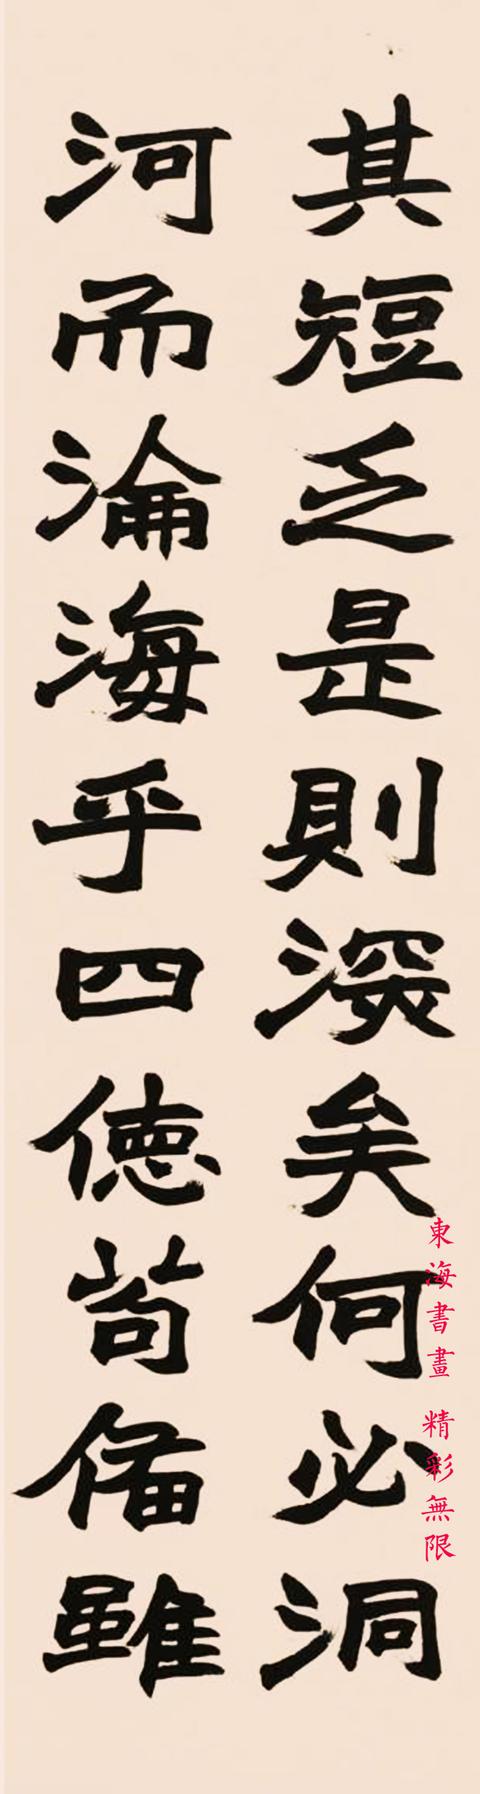 其短乏是則深矣何必洞
河而淪海乎四德苟俻雖
東海書畫 精彩無限